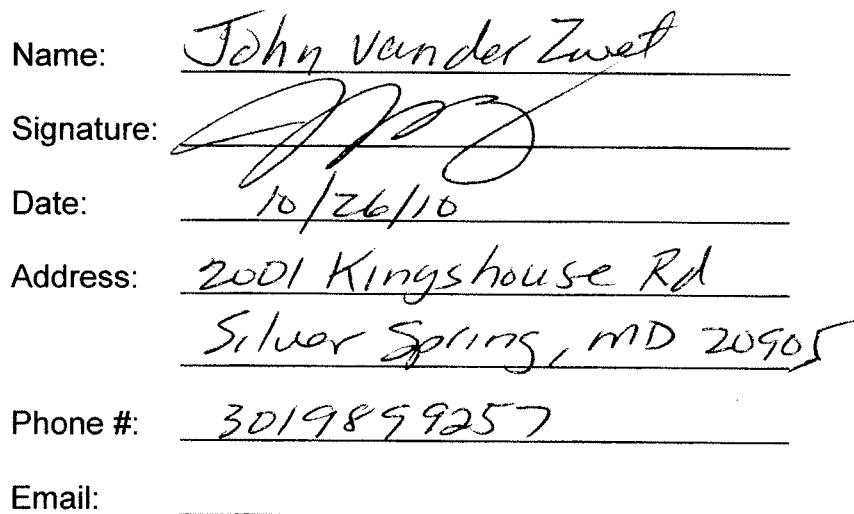 Name: John vander Zwet
Signature:
Date: 10/26/10
Address: 2001 Kingshouse Rd
Silver Spring, MD 20905
Phone #: 3019899257
Email: